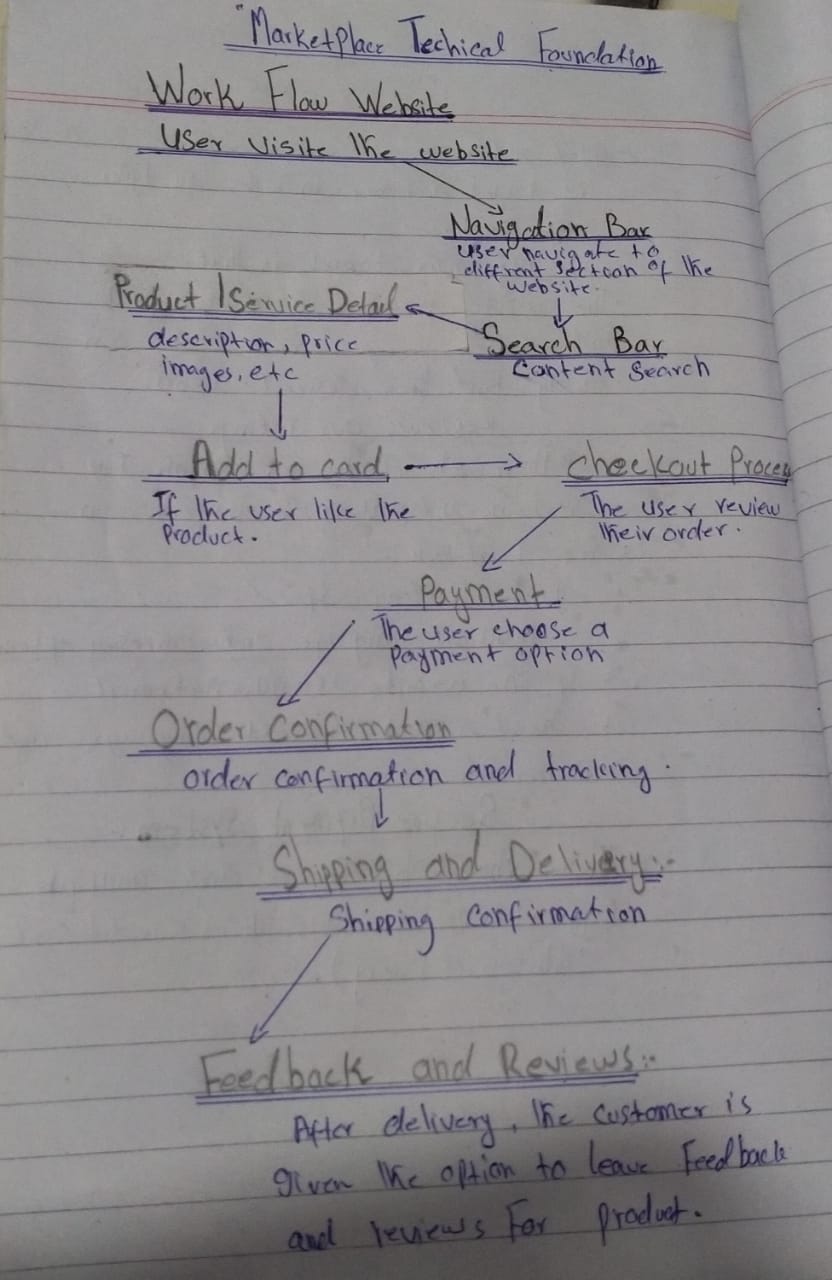 "Marketplace Techical Foundation
Work Flow Website
User visite the website
Navigation Bar
user navigate to
different section of the
website.
Product / Service Detail
description, price
images, etc
Search Bar
Content Search
Add to card
If the user like the
Product.
Checkout Process
The user review
their order.
Payment
The user choose a
Payment option
Order Confirmation
order confirmation and tracking.
Shipping and Delivery:-
Shipping Confirmation
Feedback and Reviews:-
After delivery, the customer is
given the option to leave Feedback
and reviews For product.